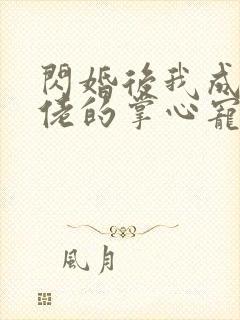 閃婚後我成
佬的掌心寵
風月